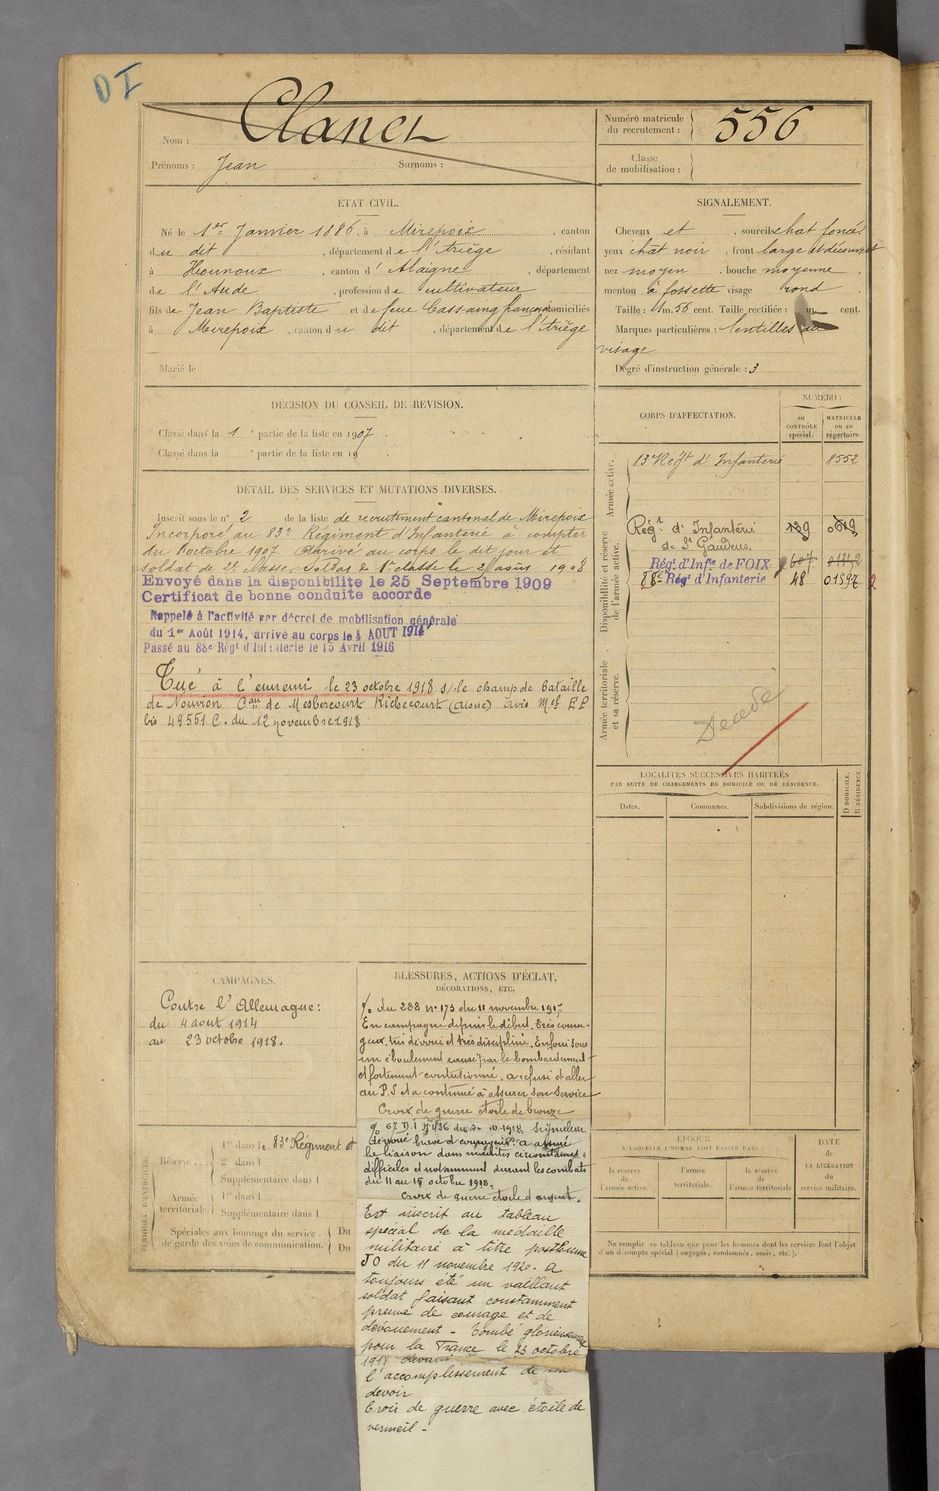 DI
Nom : Clanet
Prénoms : Jean Surnoms :
Numéro matricule du recrutement : 556
Classe de mobilisation :
ETAT CIVIL.
Né le 1er Janvier 1886, à Mirepoix, canton
du dit, département de l'Ariège, résidant
à Hounoux, canton d'Alaigne, département
de l'Aude, profession de cultivateur
fils de Jean Baptiste et de feue Cassaing françoise domiciliés
à Mirepoix, canton du dit, département de l'Ariège
Marié le
SIGNALEMENT.
Cheveux et, sourcils chat foncé
yeux chat noir, front large et découvert
nez moyen, bouche moyenne
menton à fossette visage rond
Taille : 1m. 56 cent. Taille rectifiée : m. cent.
Marques particulières : lentilles au
visage
Degré d'instruction générale : 3
DÉCISION DU CONSEIL DE REVISION.
Classé dans la 1e partie de la liste en 1907.
Classé dans la e partie de la liste en 19
DÉTAIL DES SERVICES ET MUTATIONS DIVERSES.
Inscrit sous le n° 2 de la liste de recrutement cantonal de Mirepoix
Incorporé au 83e Régiment d'Infanterie à compter
du 8 octobre 1907. Arrivé au corps le dit jour et
soldat de 2e classe. Soldat de 1e classe le 2 août 1908
Envoyé dans la disponibilite le 25 Septembre 1909
Certificat de bonne conduite accorde
Rappelé à l'activité par décret de mobilisation générale
du 1er Août 1914, arrivé au corps le 4 AOUT 1914
Passé au 88e Régt d'Infanterie le 15 Avril 1916
Tué à l'ennemi le 23 octobre 1918 s/ le champ de bataille
de Nouvion Can de Mesbrecourt Richecourt (Aisne) avis Mel EP
bis 49561 C. du 12 novembre 1918
CORPS D'AFFECTATION.
NUMÉRO :
AU CONTRÔLE spécial.
MATRICULE ou au répertoire.
Armée active.
Régt d'Infanterie 8552
Disponibilité et réserve de l'armée active.
Régt d'Infanterie
de St Gaudens.
Régt d'Infie de FOIX 607
88e Régt d'Infanterie 48
Armée territoriale et sa réserve.
Décédé
LOCALITÉS SUCCESSIVES HABITÉES
PAR SUITE DE CHANGEMENTS DE DOMICILE OU DE RÉSIDENCE.
Dates. Communes. Subdivisions de région. D DOMICILE. R RÉSIDENCE.
CAMPAGNES.
Contre l'Allemagne :
du 4 aout 1914
au 23 octobre 1918.
BLESSURES, ACTIONS D'ÉCLAT,
DÉCORATIONS, ETC.
% du 288 n° 173 du 11 novembre 1917
En campagne depuis le début. Très coura-
geux, très dévoué et très discipliné. Enfoui sous
un éboulement causé par le bombardement
et fortement contusionné, a refusé d'aller
au P.S et a continué à assurer son service
Croix de guerre étoile de bronze
% 67 D.I n° 436 du 10-1918, signaleur
dévoué brave et courageux. a assuré
la liaison dans maintes circonstances
difficiles et notamment durant les combats
du 11 au 15 octobre 1918.
Croix de guerre étoile d'argent.
Est inscrit au tableau
spécial de la médaille
militaire à titre posthume
JO du 11 novembre 1920. a
toujours été un vaillant
soldat faisant constamment
preuve de courage et de
dévouement - Tombé glorieusement
pour la France le 23 octobre
1918 devant
l'accomplissement de son
devoir
Croix de guerre avec étoile de
vermeil -
PÉRIODES D'EXERCICES
Réserve . . .
1re dans le 83e Régiment d
2e dans l
Supplémentaire dans l
Armée territoriale
1re dans l
Supplémentaire dans l
Spéciales aux hommes du service de garde des voies de communication. Du
Du
ÉPOQUE
À LAQUELLE L'HOMME DOIT PASSER DANS :
la réserve de l'armée active. l'armée territoriale. la réserve de l'armée territoriale
DATE de LA LIBÉRATION du service militaire.
Ne remplir ce tableau que pour les hommes dont les services font l'objet
d'un décompte spécial (engagés, condamnés, omis, etc.).